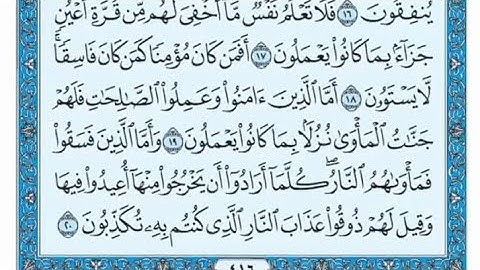 يُنفِقُونَ ١٦ فَلَا تَعْلَمُ نَفْسٌ مَّآ أُخْفِىَ لَهُم مِّن قُرَّةِ أَعْيُنٍ
جَزَآءًۢ بِمَا كَانُوا۟ يَعْمَلُونَ ١٧ أَفَمَن كَانَ مُؤْمِنًا كَمَن كَانَ فَاسِقًا ۚ
لَّا يَسْتَوُۥنَ ١٨ أَمَّا ٱلَّذِينَ ءَامَنُوا۟ وَعَمِلُوا۟ ٱلصَّـٰلِحَـٰتِ فَلَهُمْ
جَنَّـٰتُ ٱلْمَأْوَىٰ نُزُلًۢا بِمَا كَانُوا۟ يَعْمَلُونَ ١٩ وَأَمَّا ٱلَّذِينَ فَسَقُوا۟
فَمَأْوَىٰهُمُ ٱلنَّارُ ۖ كُلَّمَآ أَرَادُوٓا۟ أَن يَخْرُجُوا۟ مِنْهَآ أُعِيدُوا۟ فِيهَا
وَقِيلَ لَهُمْ ذُوقُوا۟ عَذَابَ ٱلنَّارِ ٱلَّذِى كُنتُم بِهِۦ تُكَذِّبُونَ ٢٠
٤١٦